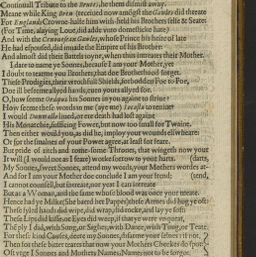 Continuall Tribute to the Brutes, he them dismist away.
Meane while King Bren (received now amongst the Gawles) did threate
For Englands Crowne-halfe him with-held his Brothers selfe & Seate:
(For Time, alaying Loue, did adde vnto domesticke hate)
And with the Gawles, whose Prince his heire of late
He had espoused, did inuade the Empire of his Brother:
And almost did their Battels ioyne, when thus intreates their Mother.
I dare to name ye Sonnes, because I am your Mother, yet
I doubt to tearme you Brothers, that doe Brotherhood forget.
These Prodigies, their wrothfull Shields, forbodden Foe to Foe,
Doe ill beseeme allyed hands, euen yours allyed so.
O, how seeme Oedipus his Sonnes in you againe to striue
How seeme these words in me (aye me)
I would liued, or eer death had lost againe
His Monarchie, sufficing Fower, but now too small for Twaine.
Then either would you, as did he, imploy your wounds els-wheare:
Or for the smalnes of your Power agree, at least for feare.
But pride of ritch and large-some Thrones, that wingeth now your
It will (I would not as I feare) worke sorrow to your harts. (darts,
My Sonnes, sweet Sonnes, attend my words, your Mothers wordes at-
And for I am your Mother doe conclude I am your friend: (tend,
I cannot counsell, but intreat, nor yet I can intreate
But as a Woman, and the same whose blood was once your meate.
Hence had ye Milke (She bared her Pappes) these Armes did hug ye oft:
These hands did wipe, did wrap, did rocke, and lay ye soft:
These Lips did kisse, or Eyes did weep, if that ye were vnquiet,
The ply I did, with Song, or Sighes, with Dance, with Tung, or Teate
For these kind Causes, deere my Sonnes,
Then for these bitter teares that now your Mothers Cheekes do spot
Oft vrge I Sonnes and Mothers Names, Names not to be forgot